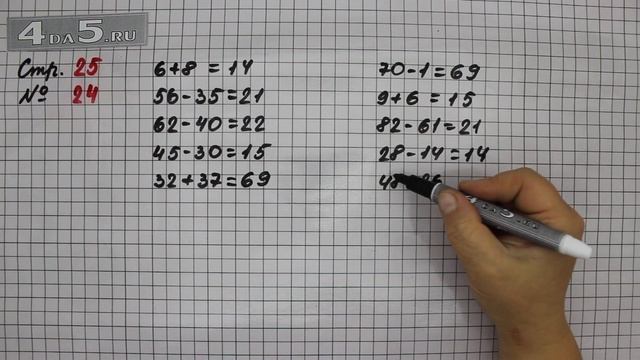 4DA5.RU
Стр. 25
№ 24
6+8 = 14
56-35=21
62-40=22
45-30=15
32+37=69
70-1=69
9+6 = 15
82-61=21
28-14=14
48